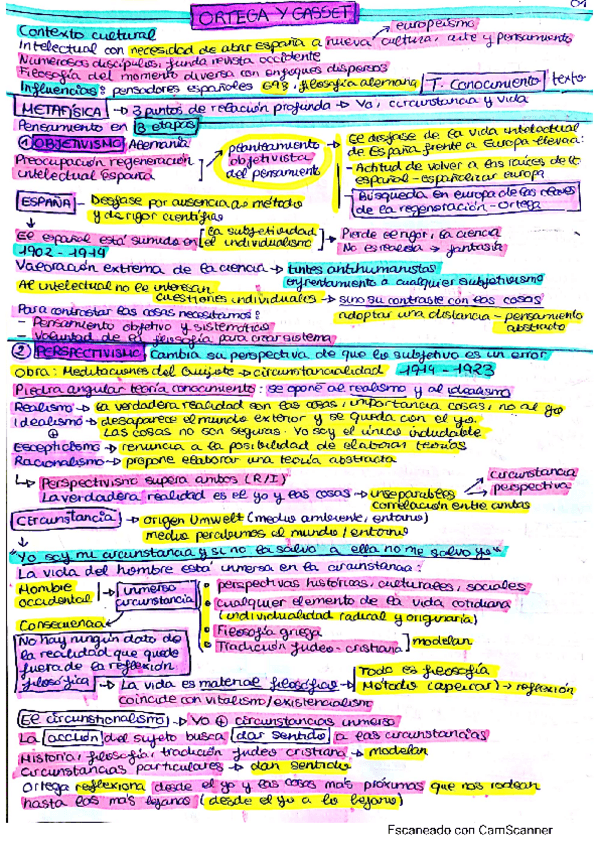 01
ORTEGA Y GASSET
europeísmo
Contexto cultural
Intelectual con necesidad de abrir España a nueva cultura, arte y pensamiento
Numerosos discípulos, funda revista occidente
Filosofía del momento diversa con enfoques dispersos
Influencias: pensadores españoles G98, filosofía alemana T. Conocimiento texto
METAFÍSICA → 3 puntos de relación profunda → Yo, circunstancia y vida
Pensamiento en 3 etapas
① OBJETIVISMO Alemania
Preocupación regeneración intelectual España
planteamiento objetivista del pensamiento
El desfase de la vida intelectual de España frente a Europa lleva:
- Actitud de volver a las raíces de lo español - españolizar europa
- Búsqueda en europa de las claves de la regeneración - Ortega
ESPAÑA - Desfase por ausencia de método y de rigor científico
El español está sumido en la subjetividad el individualismo → Pierde el rigor, la ciencia
No es realista → fantasía
1902 - 1914
Valoración extrema de la ciencia → tintes antihumanistas
enfrentamiento a cualquier subjetivismo
Al intelectual no le interesan cuestiones individuales → sino su contraste con las cosas
Para contrastar las cosas necesitamos:
adoptar una distancia - pensamiento abstracto
- Pensamiento objetivo y sistemático
- Voluntad de la filosofía para crear sistema
② PERSPECTIVISMO Cambia su perspectiva de que lo subjetivo es un error
Obra: Meditaciones del Quijote → circunstancialidad 1914 - 1923
Piedra angular teoría conocimiento: se opone al realismo y al idealismo
Realismo → la verdadera realidad son las cosas, importancia cosas, no al yo
Idealismo → desaparece el mundo exterior y se queda con el yo.
⊕ Las cosas no son seguras. Yo soy el único indudable
Escepticismo → renuncia a la posibilidad de elaborar teorías
Racionalismo → propone elaborar una teoría abstracta
↳ Perspectivismo supera ambos (R/I)
La verdadera realidad es el yo y las cosas → inseparables
correlación entre ambas
circunstancia
perspectiva
Circunstancia → origen Umwelt (medio ambiente, entorno)
medio percibimos al mundo / entorno
"Yo soy mi circunstancia y si no la salvo a ella no me salvo yo"
La vida del hombre está inmersa en la circunstancia:
Hombre occidental → inmerso circunstancia
• perspectivas históricas, culturales, sociales
• cualquier elemento de la vida cotidiana
(individualidad radical y originaria)
• Filosofía griega
• Tradición judeo-cristiana
modelan
Consecuencia
No hay ningún dato de la realidad que quede fuera de la reflexión filosófica
→ La vida es material filosófico → Todo es filosofía
Método (apelar) → reflexión
coincide con vitalismo/existencialismo
El circunstancialismo → Yo ⊕ circunstancias inmerso
La acción del sujeto busca dar sentido a las circunstancias
Historia, filosofía, tradición judeo cristiana → modelan
Circunstancias particulares → dan sentido
Ortega reflexiona desde el yo y las cosas más próximas que nos rodean
hasta las más lejanas (desde el yo a lo lejano)
Escaneado con CamScanner